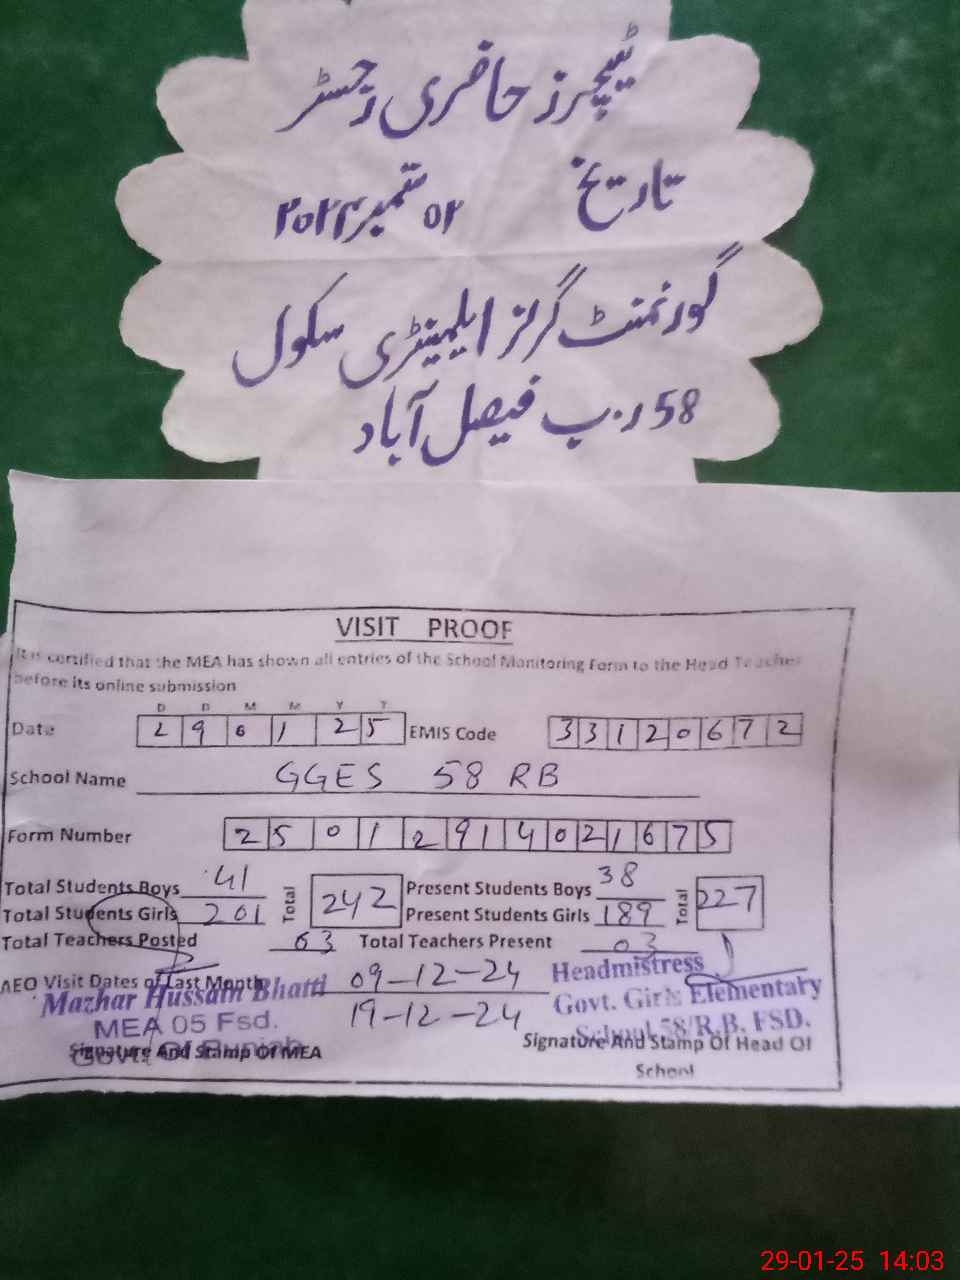 ٹیچرز حاضری رجسٹر
تاریخ ۰۲ ستمبر ۲۰۲۴
گورنمنٹ گرلز ایلیمنٹری سکول
58 ر.ب فیصل آباد
VISIT PROOF
It is certified that the MEA has shown all entries of the School Monitoring Form to the Head Teacher
before its online submission
D D M M Y Y
Date 2 9 0 1 2 5 EMIS Code 3 3 1 2 0 6 7 2
School Name GGES 58 RB
Form Number 2 5 0 1 2 9 1 4 0 2 1 6 7 5
Total Students Boys 41 Total 242 Present Students Boys 38 Total 227
Total Students Girls 201 Present Students Girls 189
Total Teachers Posted 03 Total Teachers Present 03
AEO Visit Dates of Last Month 09-12-24
19-12-24
Mazhar Hussain Bhatti
MEA 05 Fsd.
Govt. Of Punjab
Signature And Stamp Of MEA
Headmistress
Govt. Girls Elementary
School 58/R.B. FSD.
Signature And Stamp Of Head Of
School
29-01-25 14:03